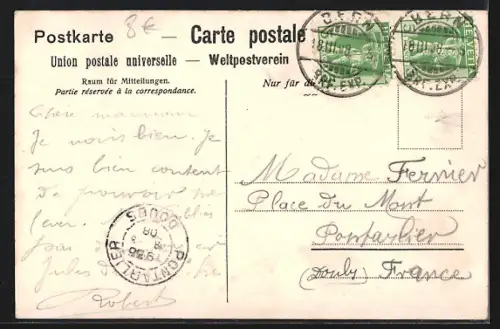 Postkarte — Carte postale
8€
Union postale universelle — Weltpostverein
Raum für Mitteilungen.
Partie réservée à la correspondance.
Nur für die
BERN
BRF. EXP.
BERN
BRF. EXP.
HELVETIA
Chère maman
Je vais bien. Je
suis bien content
de pouvoir me
lever.
pas
Jules
Robert
PONTARLIER
DOUBS
08
Madame Ferrier
Place du Mont
Pontarlier
(Doubs) France